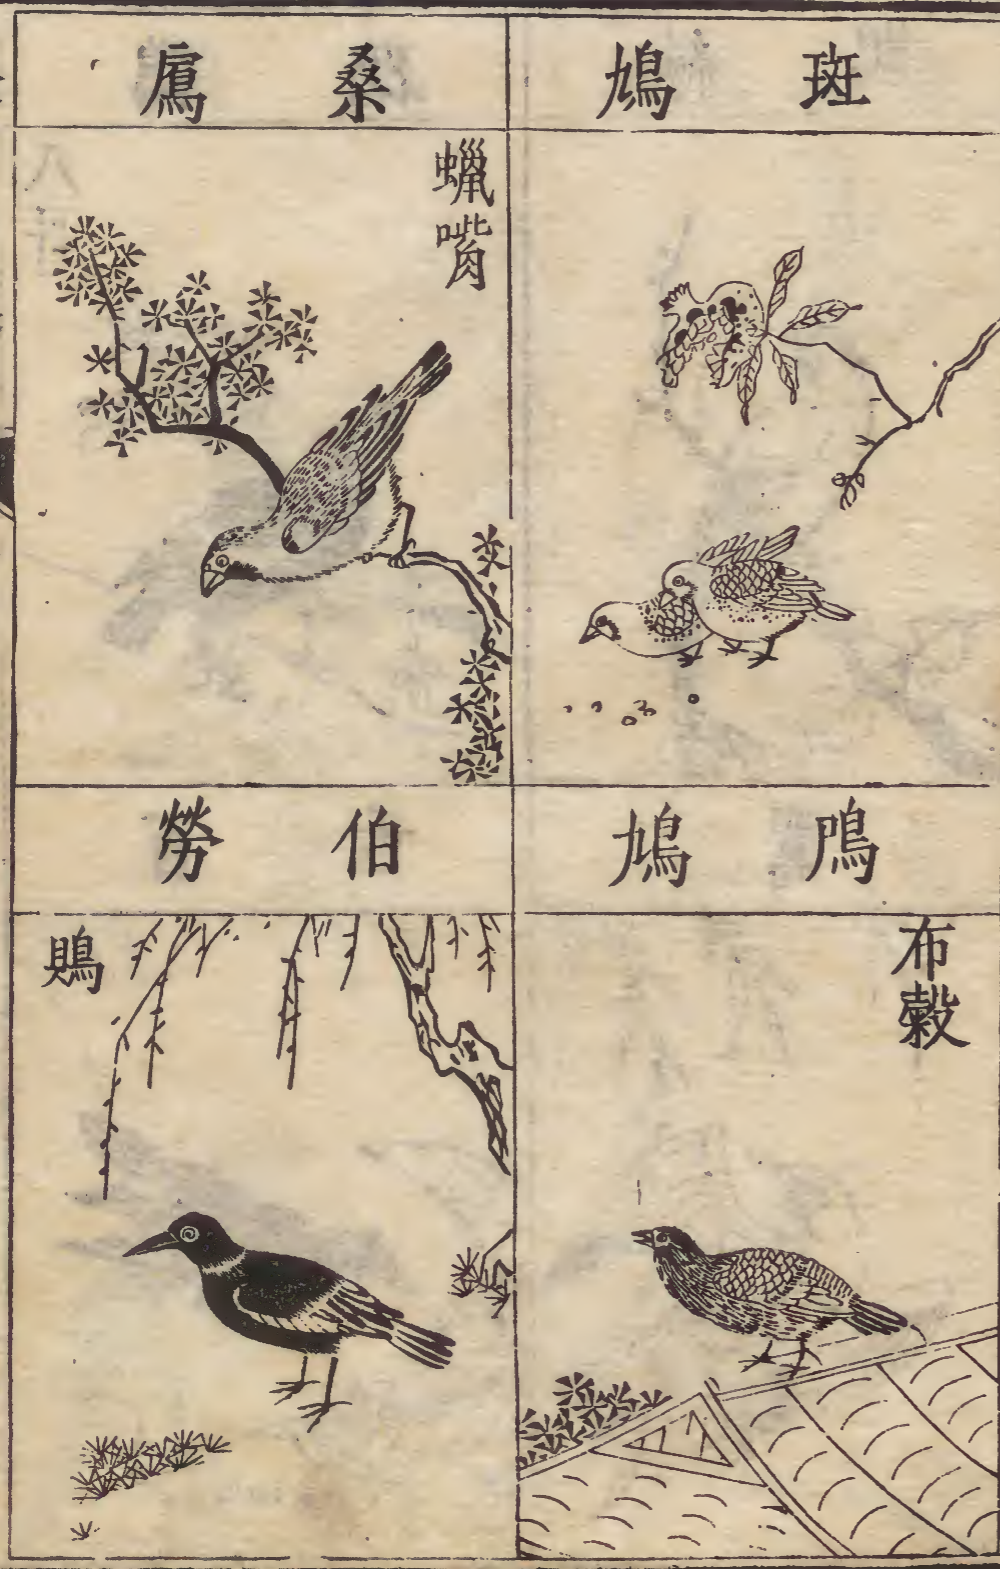 斑鳩
桑鳸
蠟嘴
鳲鳩
布穀
伯勞
鵙